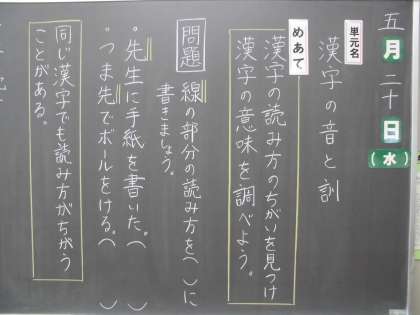 五月二十日(水)
単元名
漢字の音と訓
めあて
漢字の読み方のちがいを見つけ
漢字の意味を調べよう。
問題
線の部分の読み方を( )に
書きましょう。
。先生に手紙を書いた。( )
。つま先でボールをける。( )
同じ漢字でも読み方がちがう
ことがある。